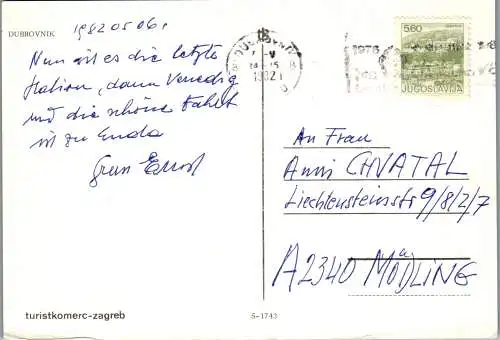 DUBROVNIK
1982 05 06.
Nun ist es die letzte
Station, dann Venedig
und die schöne Fahrt
ist zu Ende
Ernst
1982
1976
5.60
JUGOSLAVIJA
An Frau
Anni CHVATAL
Liechtensteinstr 9/8/2/7
A 2340 MÖDLING
turistkomerc-zagreb
5-1743